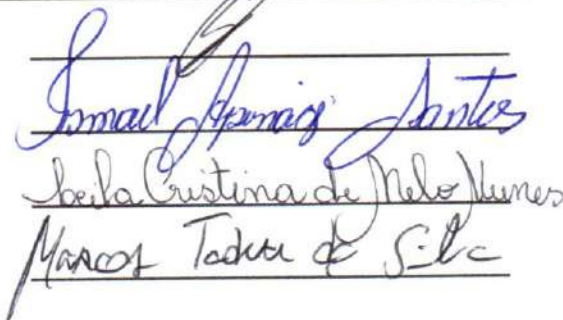 Ismael Apinagé Santos
Leila Cristina de Melo Nunes
Marcos Tadeu da Silva